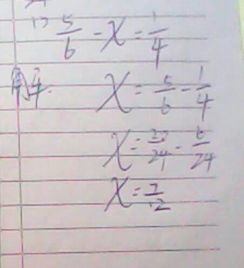 1) 5/6 - X = 1/4
解. X = 5/6 - 1/4
X = 20/24 - 6/24
X = 7/12